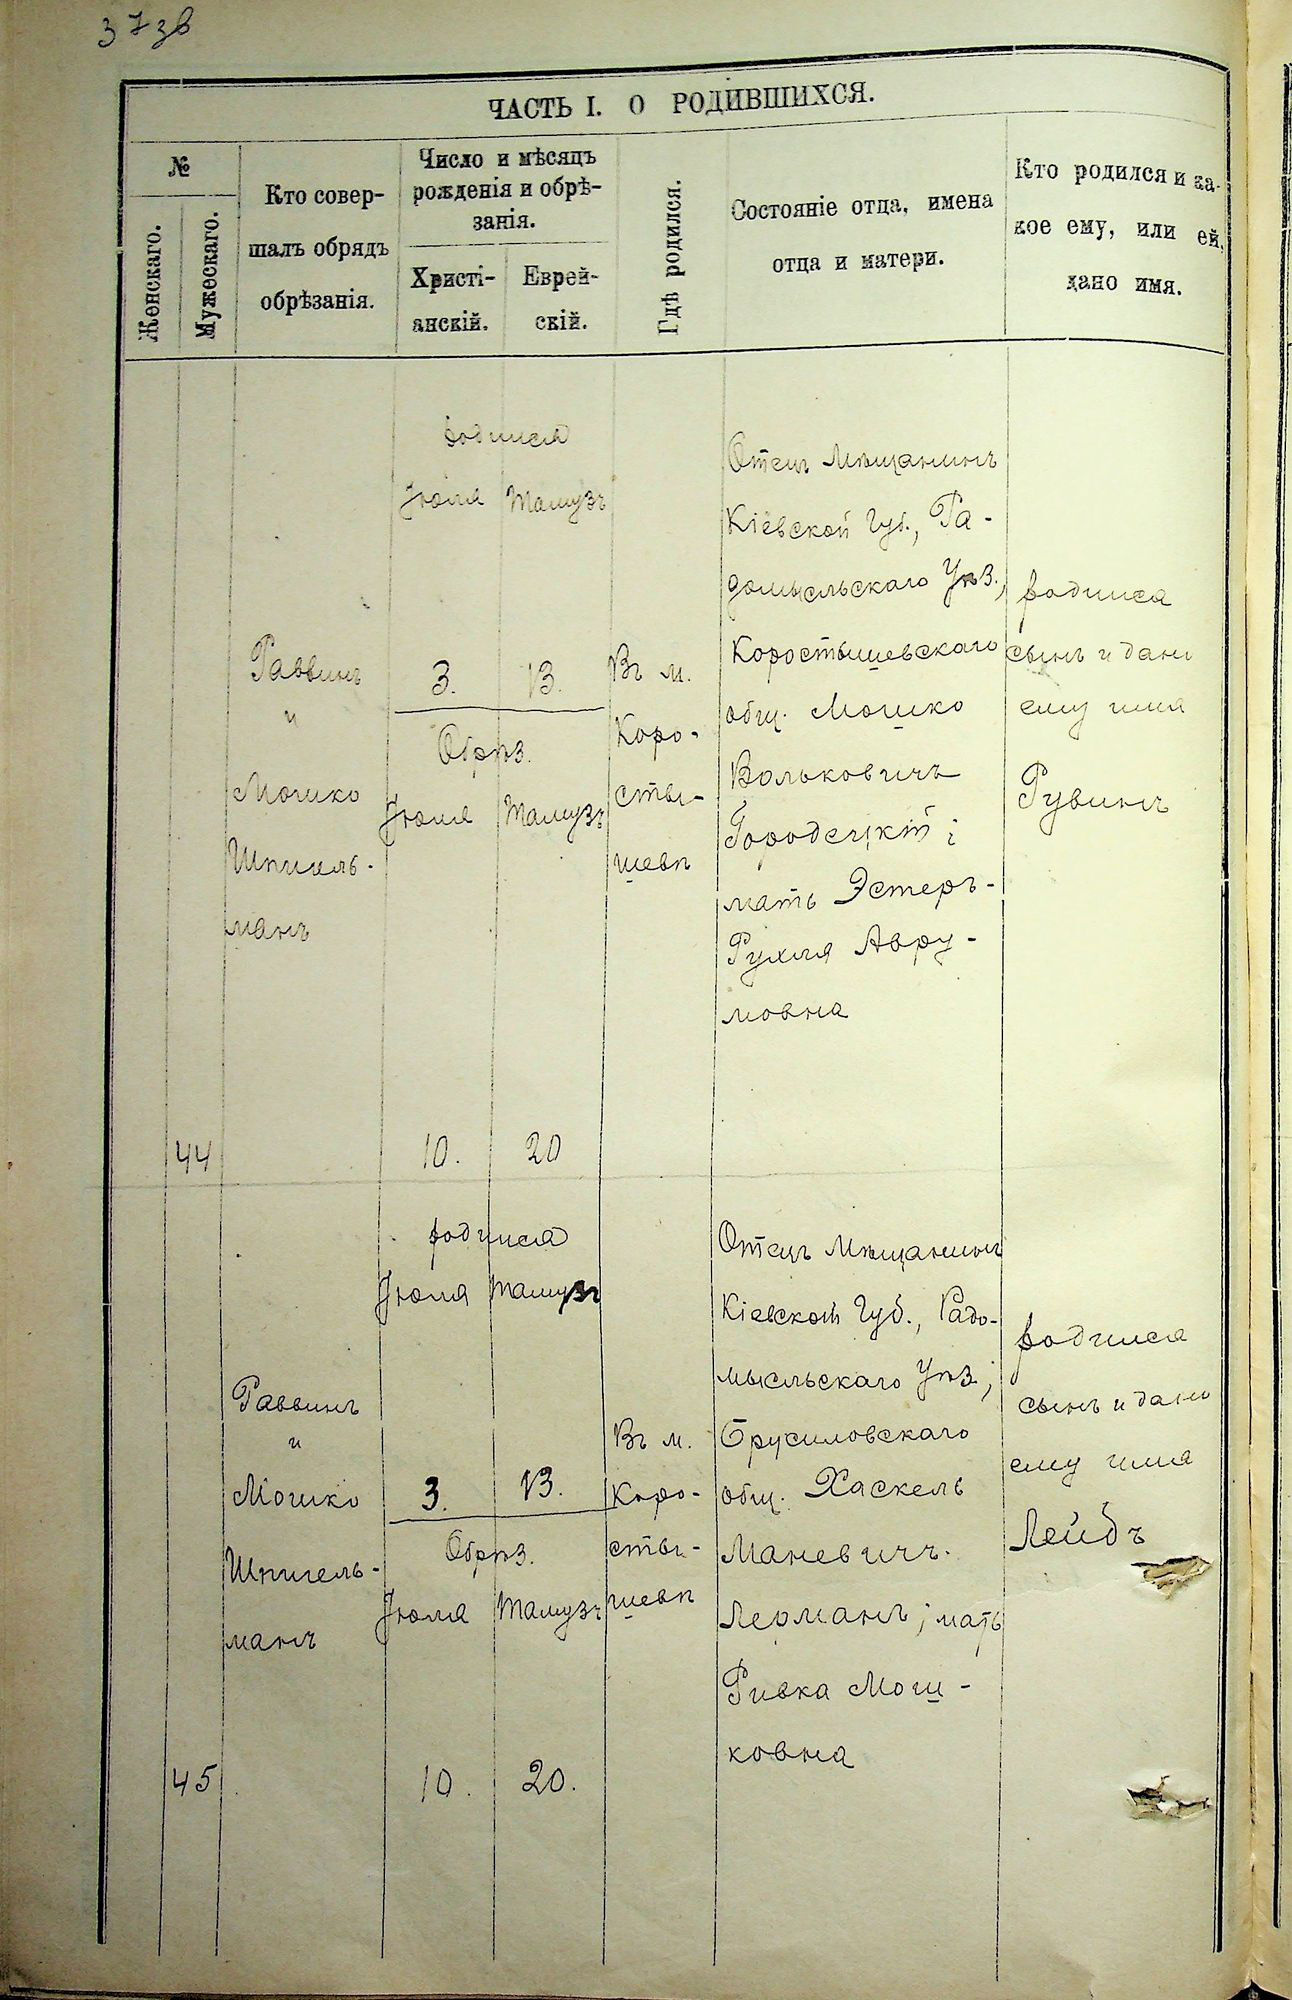 37зв
ЧАСТЬ I. О РОДИВШИХСЯ.
№
Женскаго.
Мужескаго.
Кто совер-
шалъ обрядъ
обрѣзанія.
Число и мѣсяцъ
рожденія и обрѣ-
занія.
Христі-
анскій.
Еврей-
скій.
Гдѣ родился.
Состояніе отца, имена
отца и матери.
Кто родился и ка-
кое ему, или ей,
дано имя.
44
Раввинъ
и
Мошко
Шпигель-
манъ
родился
Іюля Тамузъ
3. 13.
Обрѣз.
Іюля Тамузъ
10. 20
Въ м.
Коро-
сты-
шевѣ
Отецъ Мѣщанинъ
Кіевской Губ., Ра-
домысльскаго Уѣз.,
Коростышевскаго
общ. Мошко
Вольковичъ
Городецкій;
мать Эстеръ-
Рухля Авру-
мовна
родился
сынъ и дано
ему имя
Рувинъ
45
Раввинъ
и
Мошко
Шпигель-
манъ
родился
Іюля Тамузъ
3. 13.
Обрѣз.
Іюля Тамузъ
10. 20.
Въ м.
Коро-
сты-
шевѣ
Отецъ Мѣщанинъ
Кіевской Губ., Радо-
мысльскаго Уѣз.,
Брусиловскаго
общ. Хаскель
Маневичъ
Лерманъ; мать
Ривка Мош-
ковна
родился
сынъ и дано
ему имя
Лейбъ